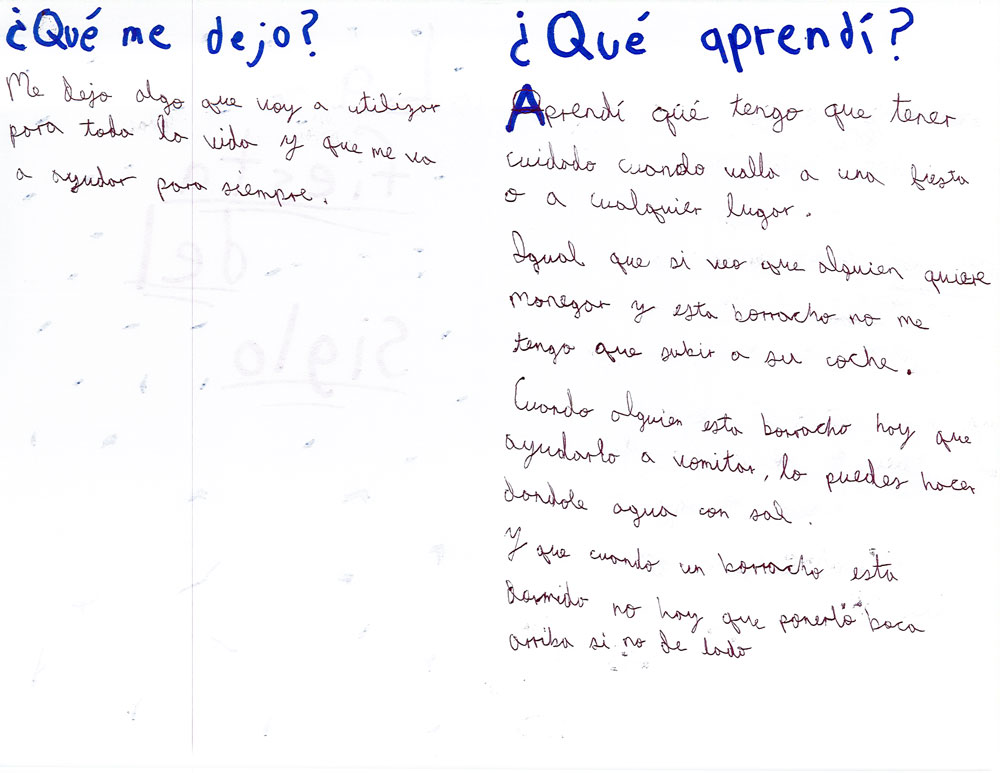 ¿Qué me dejo?
Me dejo algo que voy a utilizar
para toda la vida y que me va
a ayudar para siempre.
¿Qué aprendí?
Aprendí qué tengo que tener
cuidado cuando valla a una fiesta
o a cualquier lugar.
Igual que si veo que alguien quiere
manegar y esta borracho no me
tengo que subir a su coche.
Cuando alguien esta borracho hay que
ayudarlo a vomitar, lo puedes hacer
dandole agua con sal.
Y que cuando un borracho esta
dormido no hay que ponerlo boca
arriba si no de lado
La
fiesta
del
Siglo